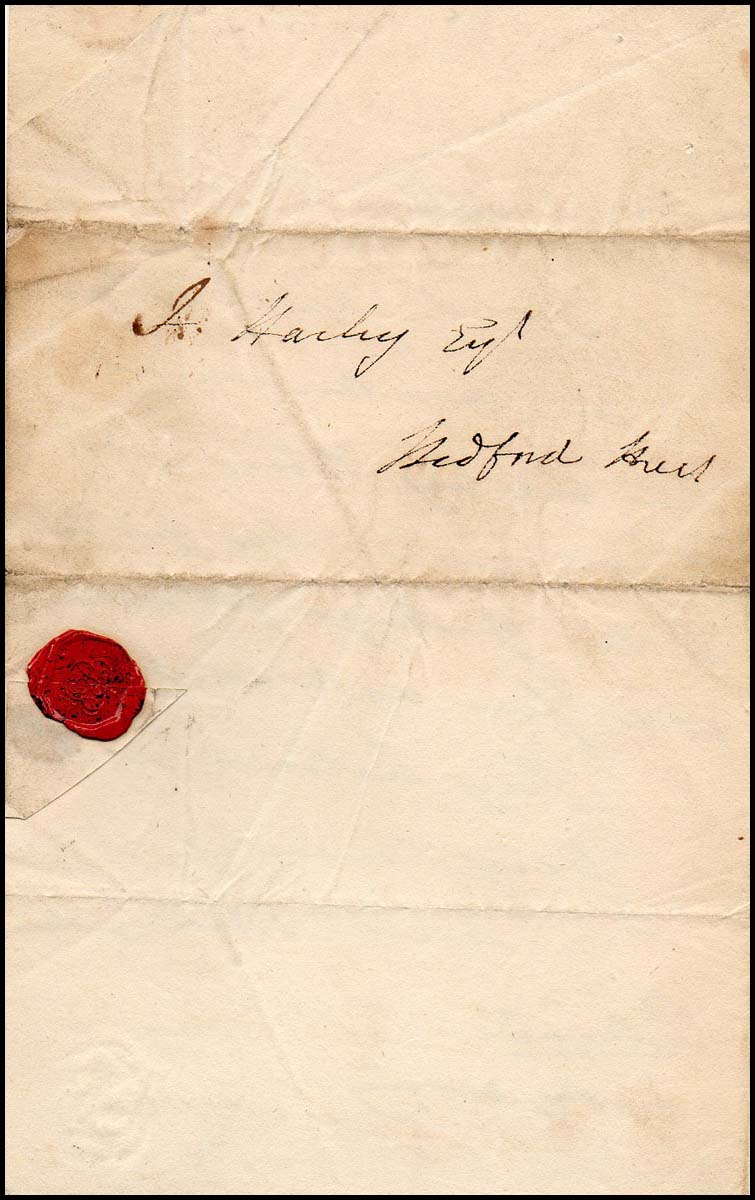 J. Harley Esqr
Bedford Street